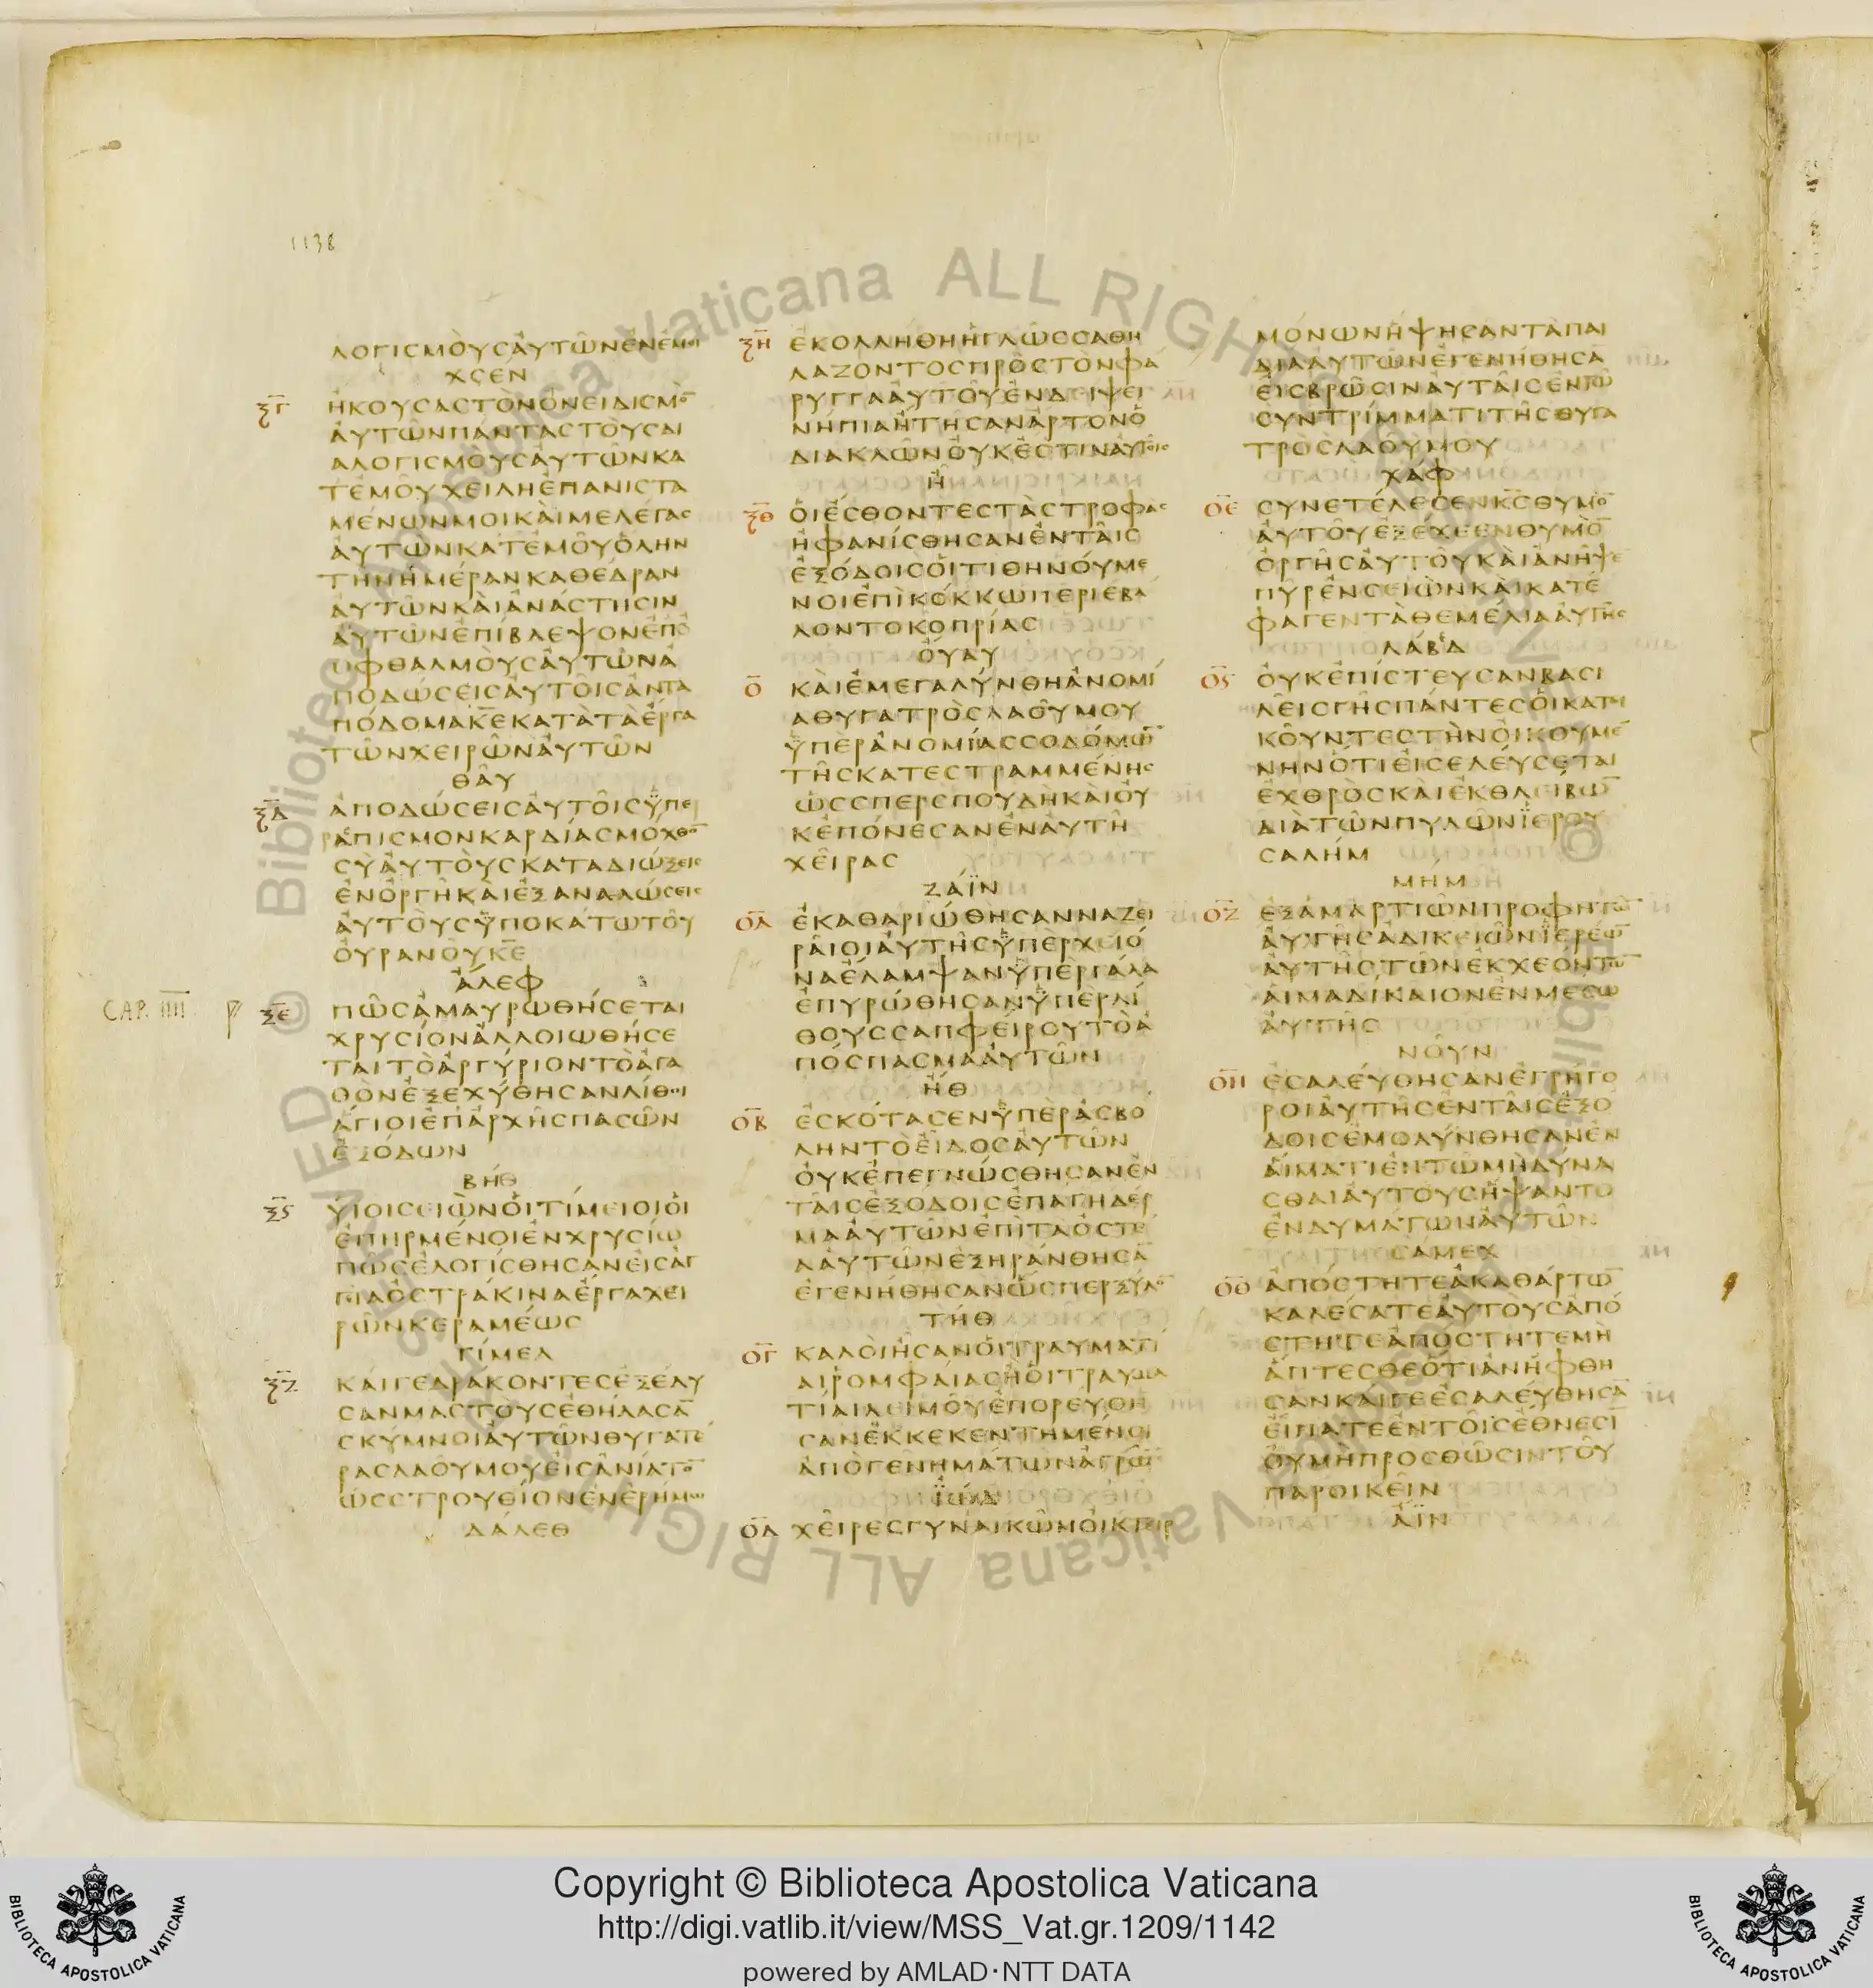 1138
ΛΟΓΙΣΜΟΥΣΑΥΤΩΝΕΝΕΜΟΙ
ΧΣΕΝ
ΞΓ ΗΚΟΥΣΑΣΤΟΝΟΝΕΙΔΙΣΜΟ̅
ΑΥΤΩΝΠΑΝΤΑΣΤΟΥΣΔΙ
ΑΛΟΓΙΣΜΟΥΣΑΥΤΩΝΚΑ
ΤΕΜΟΥΧΕΙΛΗΕΠΑΝΙΣΤΑ
ΜΕΝΩΝΜΟΙΚΑΙΜΕΛΕΤΑΣ
ΑΥΤΩΝΚΑΤΕΜΟΥΟΛΗΝ
ΤΗΝΗΜΕΡΑΝΚΑΘΕΔΡΑΝ
ΑΥΤΩΝΚΑΙΑΝΑΣΤΗΣΙΝ
ΑΥΤΩΝΕΠΙΒΛΕΨΟΝΕΠΟ
ΟΦΘΑΛΜΟΥΣΑΥΤΩΝΑ
ΠΟΔΩΣΕΙΣΑΥΤΟΙΣΑΝΤΑ
ΠΟΔΟΜΑΚ̅Ε̅ΚΑΤΑΤΑΕΡΓΑ
ΤΩΝΧΕΙΡΩΝΑΥΤΩΝ
ΘΑΥ
ΞΔ ΑΠΟΔΩΣΕΙΣΑΥΤΟΙΣΥΠΕ
ΡΑΠΙΣΜΟΝΚΑΡΔΙΑΣΜΟΧΘΟ̅
ΣΥΑΥΤΟΥΣΚΑΤΑΔΙΩΞΕΙΣ
ΕΝΟΡΓΗΚΑΙΕΞΑΝΑΛΩΣΕΙΣ
ΑΥΤΟΥΣΥΠΟΚΑΤΩΤΟΥ
ΟΥΡΑΝΟΥΚ̅Ε̅
ΑΛΕΦ
CAP. IIII ΞΕ ΠΩΣΑΜΑΥΡΩΘΗΣΕΤΑΙ
ΧΡΥΣΙΟΝΑΛΛΟΙΩΘΗΣΕ
ΤΑΙΤΟΑΡΓΥΡΙΟΝΤΟΑΓΑ
ΘΟΝΕΞΕΧΥΘΗΣΑΝΛΙΘΟΙ
ΑΓΙΟΙΕΠΑΡΧΗΣΠΑΣΩΝ
ΕΞΟΔΩΝ
ΒΗΘ
ΞϚ ΥΙΟΙΣΕΙΩΝΟΙΤΙΜΕΙΟΙΟΙ
ΕΠΗΡΜΕΝΟΙΕΝΧΡΥΣΙΩ
ΠΩΣΕΛΟΓΙΣΘΗΣΑΝΕΙΣΑΓ
ΓΙΑΟΣΤΡΑΚΙΝΑΕΡΓΑΧΕΙ
ΡΩΝΚΕΡΑΜΕΩΣ
ΓΙΜΕΛ
ΞΖ ΚΑΙΓΕΔΡΑΚΟΝΤΕΣΕΞΕΔΥ
ΣΑΝΜΑΣΤΟΥΣΕΘΗΛΑΣΑ̅
ΣΚΥΜΝΟΙΑΥΤΩΝΘΥΓΑΤΕ
ΡΑΣΛΑΟΥΜΟΥΕΙΣΑΝΙΑΤΟ̅
ΩΣΣΤΡΟΥΘΙΟΝΕΝΕΡΗΜΩ
ΔΑΛΕΘ
ΞΗ ΕΚΟΛΛΗΘΗΗΓΛΩΣΣΑΘΗ
ΛΑΖΟΝΤΟΣΠΡΟΣΤΟΝΦΑ
ΡΥΓΓΑΑΥΤΟΥΕΝΔΕΙΨΕΙ
ΝΗΠΙΑΗΤΗΣΑΝΑΡΤΟΝΟ
ΔΙΑΚΛΩΝΟΥΚΕΣΤΙΝΑΥΤΟΙΣ
Η
ΞΘ ΟΙΕΣΘΟΝΤΕΣΤΑΣΤΡΟΦΑΣ
ΗΦΑΝΙΣΘΗΣΑΝΕΝΤΑΙΣ
ΕΞΟΔΟΙΣΟΙΤΙΘΗΝΟΥΜΕ
ΝΟΙΕΠΙΚΟΚΚΩΠΕΡΙΕΒΑ
ΛΟΝΤΟΚΟΠΡΙΑΣ
ΟΥΑΥ
Ο ΚΑΙΕΜΕΓΑΛΥΝΘΗΑΝΟΜΙ
ΑΘΥΓΑΤΡΟΣΛΑΟΥΜΟΥ
ΥΠΕΡΑΝΟΜΙΑΣΣΟΔΟΜΩ̅
ΤΗΣΚΑΤΕΣΤΡΑΜΜΕΝΗΣ
ΩΣΣΠΕΡΣΠΟΥΔΗΚΑΙΟΥ
ΚΕΠΟΝΕΣΑΝΕΝΑΥΤΗ
ΧΕΙΡΑΣ
ΖΑΙΝ
ΟΑ ΕΚΑΘΑΡΙΩΘΗΣΑΝΝΑΖΕΙ
ΡΑΙΟΙΑΥΤΗΣΥΠΕΡΧΕΙΟ
ΝΑΕΛΑΜΨΑΝΥΠΕΡΓΑΛΑ
ΕΠΥΡΩΘΗΣΑΝΥΠΕΡΛΙ
ΘΟΥΣΣΑΠΦΕΙΡΟΥΤΟΑ
ΠΟΣΠΑΣΜΑΑΥΤΩΝ
ΗΘ
ΟΒ ΕΣΚΟΤΑΣΕΝΥΠΕΡΑΣΒΟ
ΛΗΝΤΟΕΙΔΟΣΑΥΤΩΝ
ΟΥΚΕΠΕΓΝΩΣΘΗΣΑΝΕΝ
ΤΑΙΣΕΞΟΔΟΙΣΕΠΑΓΗΔΕΡ
ΜΑΑΥΤΩΝΕΠΙΤΑΟΣΤΕ
ΑΑΥΤΩΝΕΞΗΡΑΝΘΗΣΑ̅
ΕΓΕΝΗΘΗΣΑΝΩΣΠΕΡΞΥΛΟ̅
ΤΗΘ
ΟΓ ΚΑΛΟΙΗΣΑΝΟΙΤΡΑΥΜΑΤΙ
ΑΙΡΟΜΦΑΙΑΣΗΟΙΤΡΑΥΜΑ
ΤΙΑΙΛΕΙΜΟΥΕΠΟΡΕΥΘΗ
ΣΑΝΕΚΚΕΚΕΝΤΗΜΕΝΟΙ
ΑΠΟΓΕΝΗΜΑΤΩΝΑΓΡΩ̅
ΙΩΔ
ΟΔ ΧΕΙΡΕΣΓΥΝΑΙΚΩΝΟΙΚΤΕΙΡ
ΜΟΝΩΝΗΨΗΣΑΝΤΑΠΑΙ
ΔΙΑΑΥΤΩΝΕΓΕΝΗΘΗΣΑ̅
ΕΙΣΒΡΩΣΙΝΑΥΤΑΙΣΕΝΤΩ
ΣΥΝΤΡΙΜΜΑΤΙΤΗΣΘΥΓΑ
ΤΡΟΣΛΑΟΥΜΟΥ
ΧΑΦ
ΟΕ ΣΥΝΕΤΕΛΕΣΕΝΚ̅Σ̅ΘΥΜΟ̅
ΑΥΤΟΥΕΞΕΧΕΕΝΘΥΜΟ̅
ΟΡΓΗΣΑΥΤΟΥΚΑΙΑΝΗΨΕ
ΠΥΡΕΝΣΕΙΩΝΚΑΙΚΑΤΕ
ΦΑΓΕΝΤΑΘΕΜΕΛΙΑΑΥΤΗΣ
ΛΑΒΔ
ΟϚ ΟΥΚΕΠΙΣΤΕΥΣΑΝΒΑΣΙ
ΛΕΙΣΓΗΣΠΑΝΤΕΣΟΙΚΑΤΟΙ
ΚΟΥΝΤΕΣΤΗΝΟΙΚΟΥΜΕ
ΝΗΝΟΤΙΕΙΣΕΛΕΥΣΕΤΑΙ
ΕΧΘΡΟΣΚΑΙΕΚΘΛΕΙΒΩ̅
ΔΙΑΤΩΝΠΥΛΩΝΙΕΡΟΥ
ΣΑΛΗΜ
ΜΗΜ
ΟΖ ΕΞΑΜΑΡΤΙΩΝΠΡΟΦΗΤΩ̅
ΑΥΤΗΣΑΔΙΚΕΙΩΝΙΕΡΕΩ̅
ΑΥΤΗΣΤΩΝΕΚΧΕΟΝΤΩ̅
ΑΙΜΑΔΙΚΑΙΟΝΕΝΜΕΣΩ
ΑΥΤΗΣ
ΝΟΥΝ
ΟΗ ΕΣΑΛΕΥΘΗΣΑΝΕΓΡΗΓΟ
ΡΟΙΑΥΤΗΣΕΝΤΑΙΣΕΞΟ
ΔΟΙΣΕΜΟΛΥΝΘΗΣΑΝΕΝ
ΑΙΜΑΤΙΕΝΤΩΜΗΔΥΝΑ
ΣΘΑΙΑΥΤΟΥΣΗΨΑΝΤΟ
ΕΝΔΥΜΑΤΩΝΑΥΤΩΝ
ΣΑΜΕΧ
ΟΘ ΑΠΟΣΤΗΤΕΑΚΑΘΑΡΤΩ̅
ΚΑΛΕΣΑΤΕΑΥΤΟΥΣΑΠΟ
ΣΤΗΤΕΑΠΟΣΤΗΤΕΜΗ
ΑΠΤΕΣΘΕΟΤΙΑΝΗΦΘΗ
ΣΑΝΚΑΙΓΕΕΣΑΛΕΥΘΗΣΑ̅
ΕΙΠΑΤΕΕΝΤΟΙΣΕΘΝΕΣΙ̅
ΟΥΜΗΠΡΟΣΘΩΣΙΝΤΟΥ
ΠΑΡΟΙΚΕΙΝ
ΑΙΝ
© Biblioteca Apostolica Vaticana ALL RIGHTS RESERVED
Copyright © Biblioteca Apostolica Vaticana
http://digi.vatlib.it/view/MSS_Vat.gr.1209/1142
powered by AMLAD·NTT DATA
BIBLIOTECA APOSTOLICA VATICANA
BIBLIOTECA APOSTOLICA VATICANA